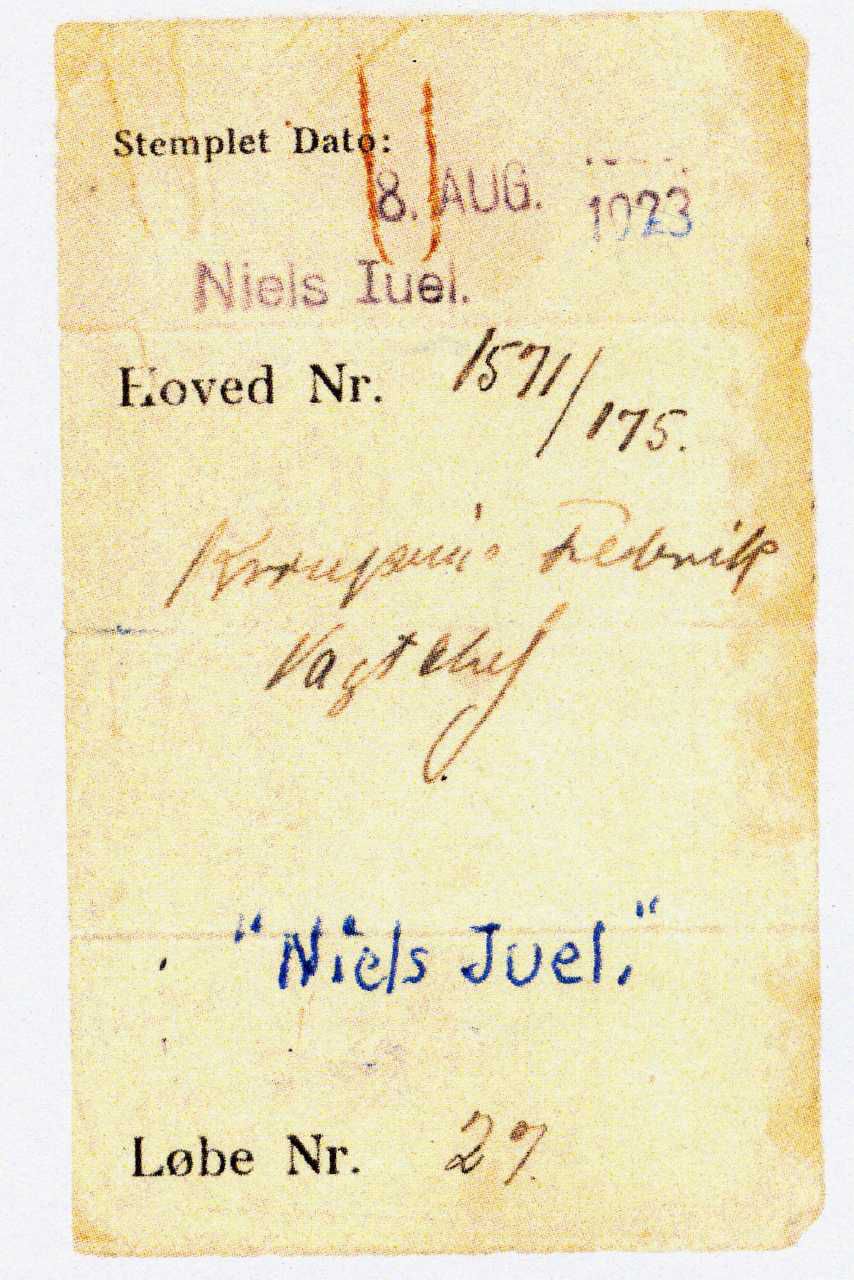 Stemplet Dato:
8. AUG. 1923
Niels Iuel.
Hoved Nr. 1571/175.
Kronprins Fedrik
Vagtchef
"Niels Juel."
Løbe Nr. 27